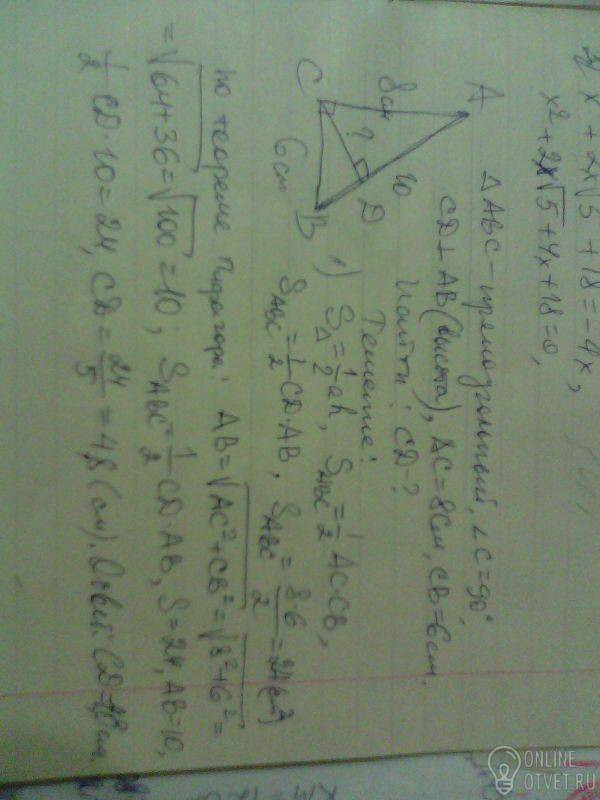 x + 2x√5 + 18 = -4x,
x² + 2x√5 + 4x + 18 = 0,
A
8см
C
?
10
D
6см
B
△ABC - прямоугольный, ∠C = 90°,
CD ⊥ AB (высота), AC = 8см, CB = 6см.
Найти: CD - ?
Решение:
1) S△ = 1/2 ah, SABC = 1/2 AC·CB,
SABC = 1/2 CD·AB, SABC = 8·6/2 = 24 (см²)
по теореме Пифагора: AB = √AC² + CB² = √8² + 6² =
= √64 + 36 = √100 = 10; SABC = 1/2 CD·AB, S = 24, AB = 10,
1/2 CD·10 = 24, CD = 24/5 = 4,8 (см). Ответ: CD = 4,8 см.
ONLINE
OTVET.RU